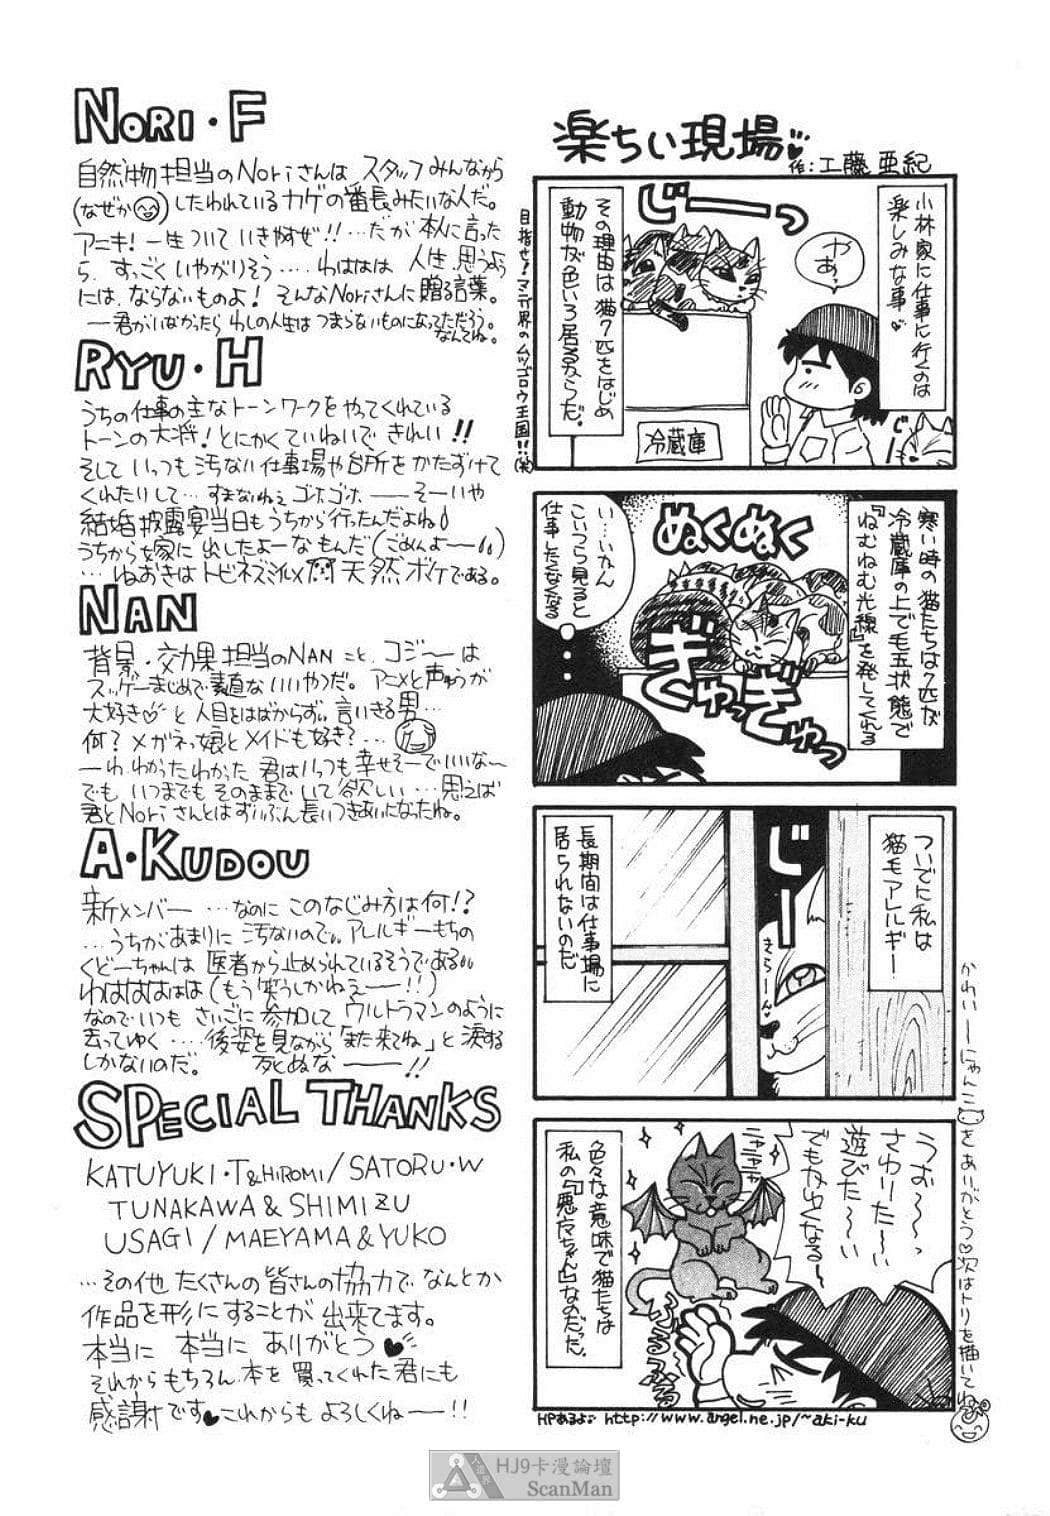 NORI・F
自然物担当のNoriさんは スタッフみんなから
(なぜか)したわれているカゲの番長みたいな人だ。
アニキ！一生ついていきやすぜ!!…だが本人に言った
ら、すっごくいやがりそう….わははは 人生 思うよう
には、ならないものよ！ そんなNoriさんに贈る言葉。
—君がいなかったら わしの人生は つまらないものになってただろう。
なんてね。
RYU・H
うちの仕事の主なトーンワークをやってくれている
トーンの大将！とにかくていねいで きれい!!
そして いつも汚ない仕事場や台所をかたずけて
くれたりして… すまないねえ ゴホゴホ ——そーいや
結婚披露宴当日もうちから行ったんだよね
うちから嫁に出したよーなもんだ(ごめんよ——)
…ねおきはトビネズミ似〆 天然ボケである。
NAN
背景・効果担当のNANこと、コジ〜は
スッゲーまじめで素直ないいやつだ。アニメと声ゆうが
大好き♡と人目をはばからず言いきる男…
何？メガネっ娘とメイドも好き？…
—わ、わかったわかった 君はいつも幸せそーでいいな〜
でも いつまでも そのままで いて欲しい…思えば
君とNoriさんとはずいぶん長いつきあいになったね。
A・KUDOU
新メンバー…なのに このなじみ方は何!?
…うちがあまりに 汚ないので アレルギーもちの
くどーちゃんは 医者から止められているそうである
わはははははは(もう笑うしかねえ—!!)
なので いつも さいごに参加して ウルトラマンのように
去ってゆく….後姿を見ながら「また来てね」と涙する
しかないのだ。 死ぬな ——!!
SPECIAL THANKS
KATUYUKI・T & HIROMI / SATORU・W
TUNAKAWA & SHIMIZU
USAGI / MAEYAMA & YUKO
…その他 たくさんの皆さんの協力で なんとか
作品を形にすることが 出来てます。
本当に 本当に ありがとう♥
それからもちろん、本を買ってくれた君にも
感謝です♥これからも よろしくね——!!
楽ちい現場♥
作：工藤 亜紀
小林家に仕事に行くのは
楽しみな事♥
やあっ
じーーっ
じーっ
その理由は猫7匹をはじめ
動物が色いろ居るからだ。
冷蔵庫
目指せ！マンガ界のムツゴロウ王国!!(笑)
寒い時の猫たちは7匹が
冷蔵庫の上で毛玉状態で
『ねむねむ光線』を発してくれる
ぬくぬく
ぎゅっぎゅっ
い…いかん
こいつら見ると
仕事したくなくなる
ついでに私は
猫毛アレルギー！
じーー
きらーん♥
長期間は仕事場に
居られないのだ
うお〜〜
さわりた〜〜
遊びた〜〜い
でもかゆくなる〜
ニャニャ
ふるふる
色々な意味で猫たちは
私の「悪魔ちゃん」なのだった。
かわいーにゃんこをありがとう♡次はトリを描いてね
HPあるよ http://www.angel.ne.jp/~aki-ku
HJ9卡漫論壇
ScanMan